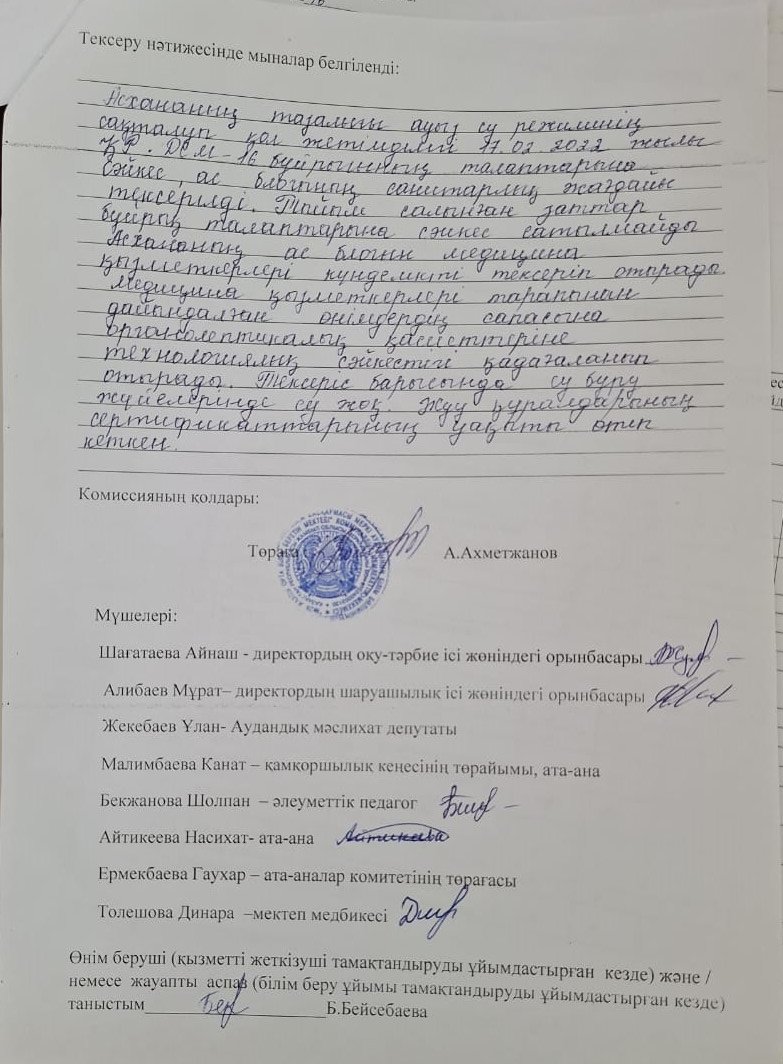 Тексеру нәтижесінде мыналар белгіленді:
Асхананың тазалығы ауыз су режимінің
сақталуы қол жетімділігі 17.02 2022 жылы
ҚР. ДСМ-16 бұйрығының талаптарына
сәйкес, ас блогының санитарлық жағдайы
тексерілді. Тыйым салынған заттар
бұйрық талаптарына сәйкес сатылмайды
Асхананың ас блогын медицина
қызметкерлері күнделікті тексеріп отырады.
Медицина қызметкерлері тарапынан
дайындалған өнімдердің сапасына
органолептикалық қасиеттеріне
технологиялық сәйкестігі қадағаланып
отырады. Тексеріс барысында су бұру
жүйелерінде су жоқ. Жуу құралдарының
сертификаттарының уақыты өтіп
кеткен.
Комиссияның қолдары:
Төраға А.Ахметжанов
Мүшелері:
Шағатаева Айнаш - директордың оқу-тәрбие ісі жөніндегі орынбасары
Алибаев Мұрат– директордың шаруашылық ісі жөніндегі орынбасары
Жекебаев Ұлан- Аудандық мәслихат депутаты
Малимбаева Канат – қамқоршылық кеңесінің төрайымы, ата-ана
Бекжанова Шолпан – әлеуметтік педагог
Айтикеева Насихат- ата-ана
Ермекбаева Гаухар – ата-аналар комитетінің төрағасы
Толешова Динара –мектеп медбикесі
Өнім беруші (қызметті жеткізуші тамақтандыруды ұйымдастырған кезде) және /
немесе жауапты аспаз (білім беру ұйымы тамақтандыруды ұйымдастырған кезде)
таныстым Б.Бейсебаева